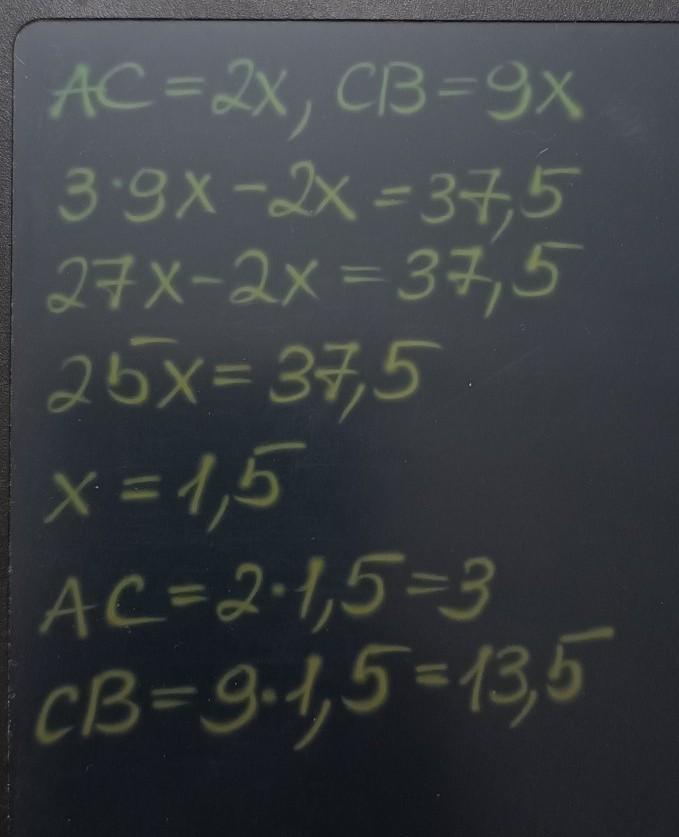 AC = 2x, CB = 9x
3·9x - 2x = 37,5
27x - 2x = 37,5
25x = 37,5
x = 1,5
AC = 2·1,5 = 3
CB = 9·1,5 = 13,5